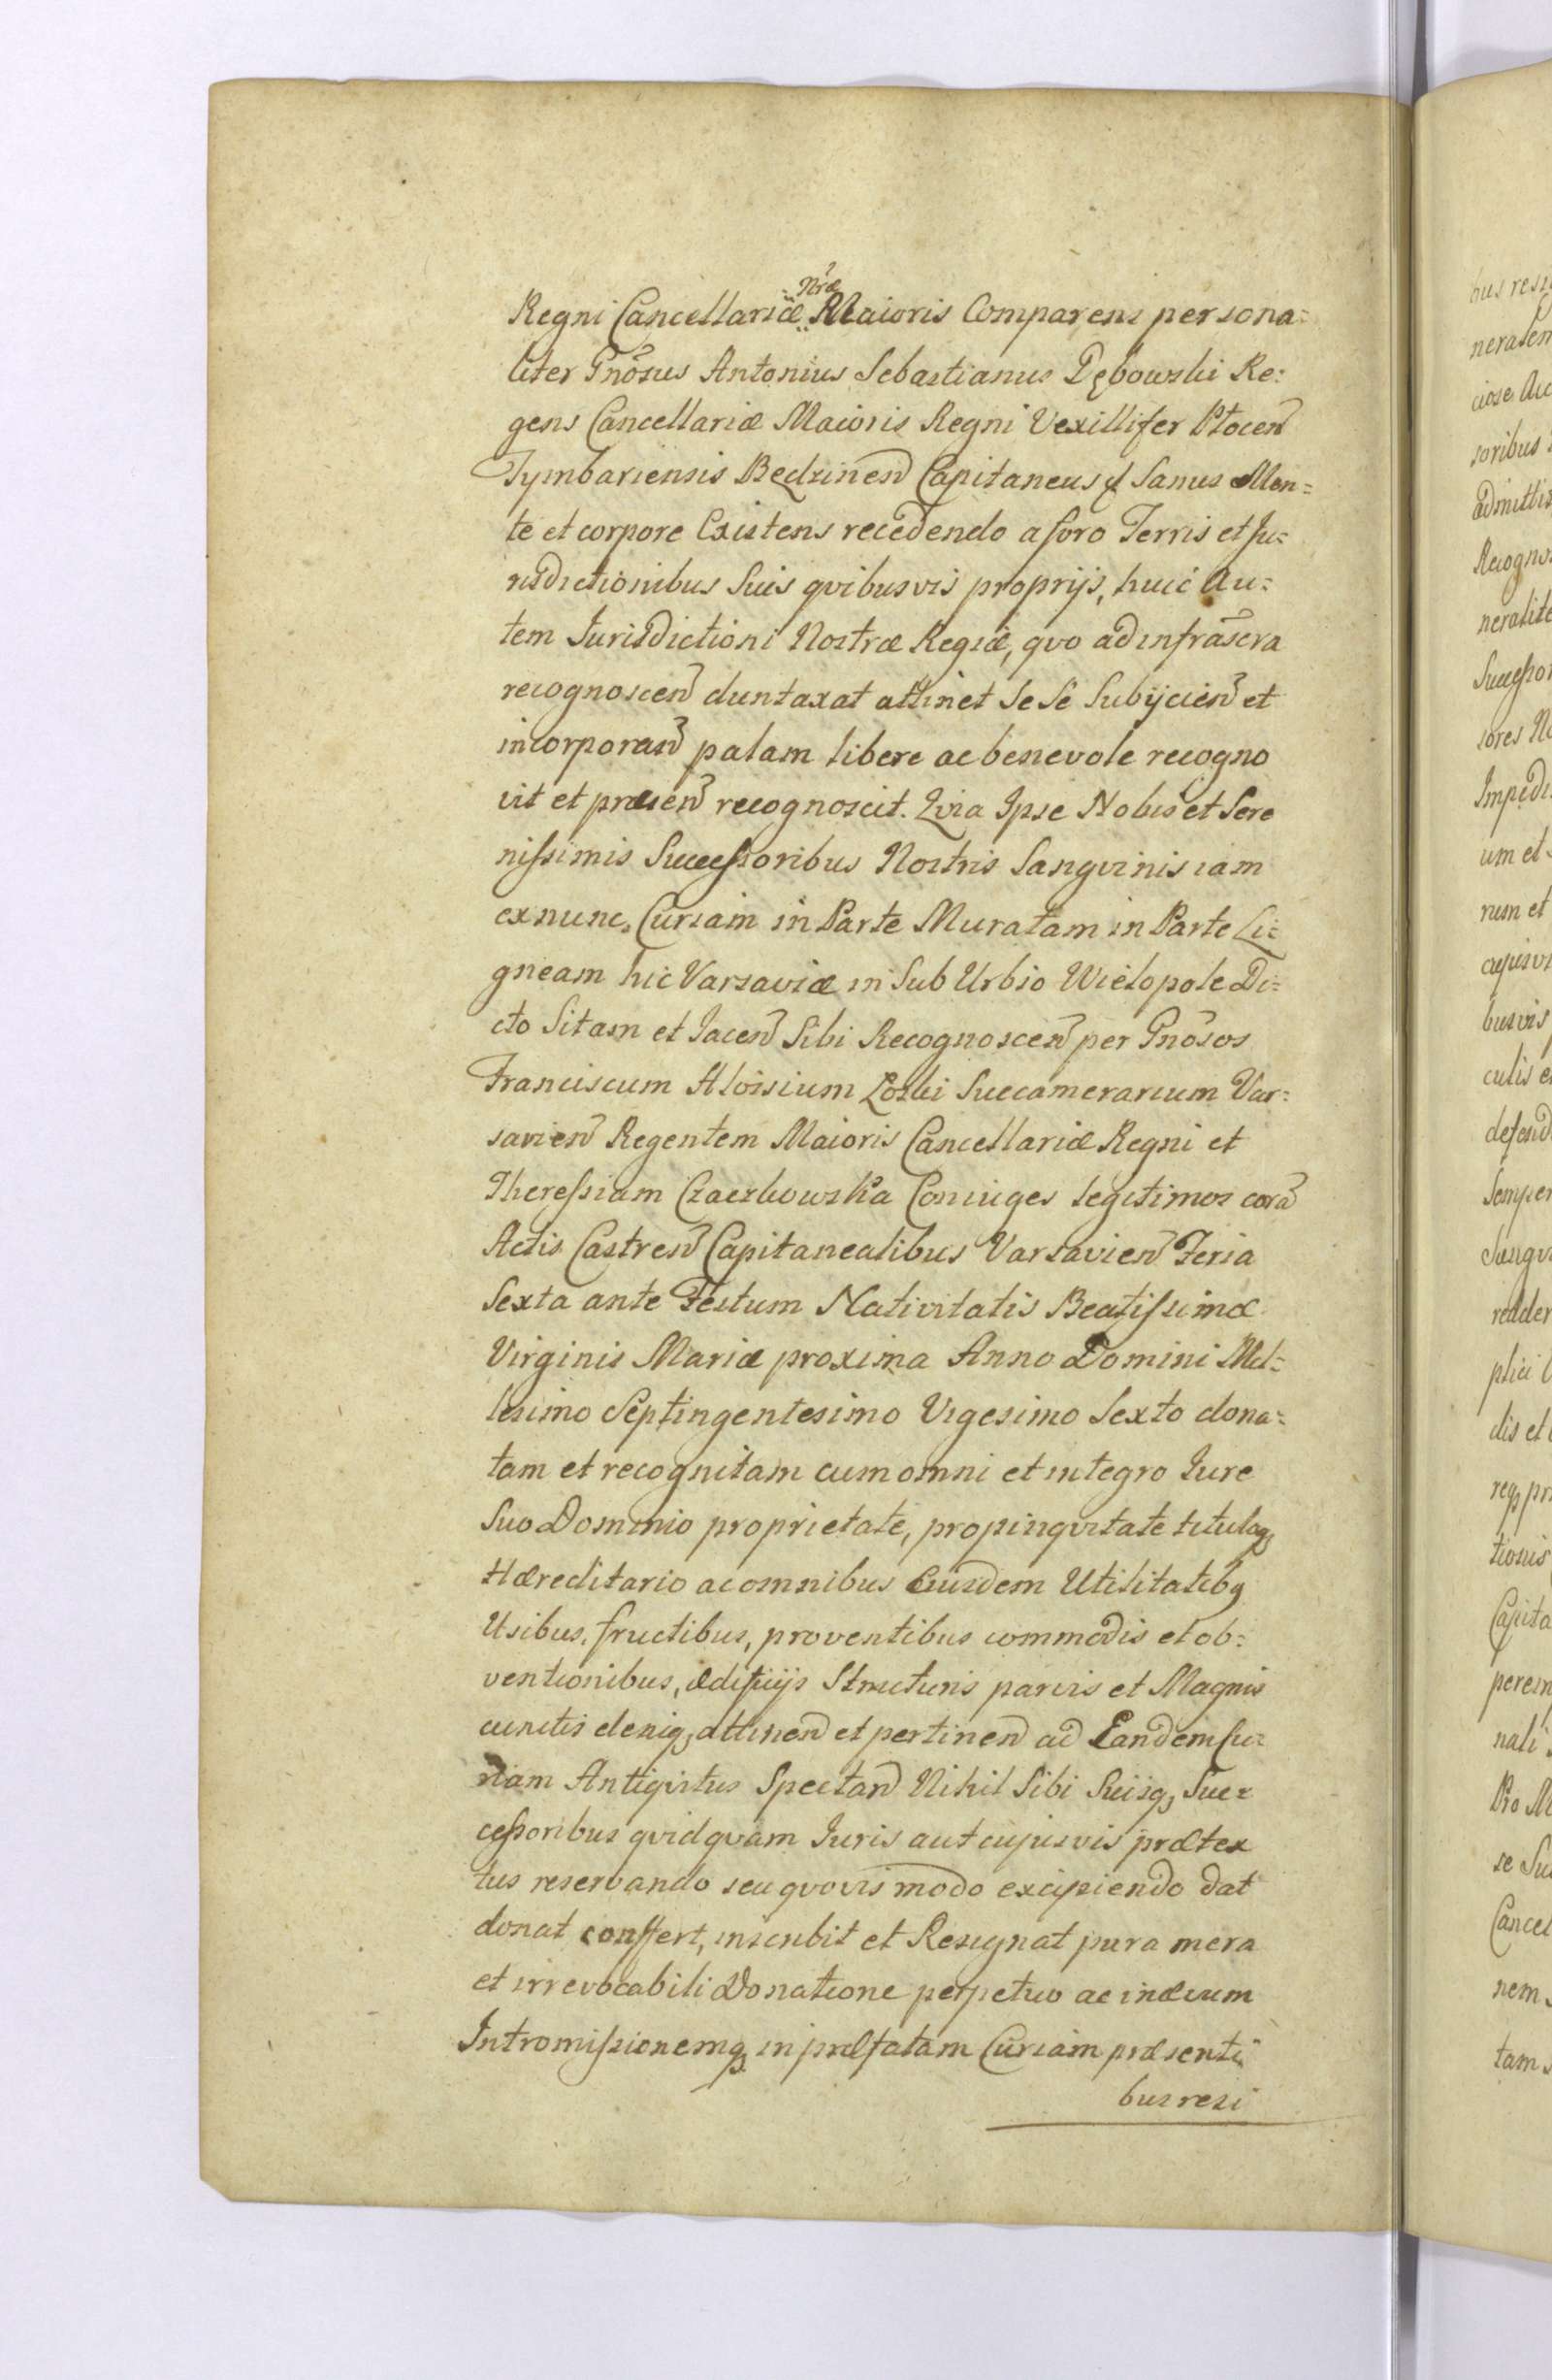 Nræ
Regni Cancellariæ Maioris Comparens persona=
liter Gnosus Antonius Sebastianus Dębowski Re=
gens Cancellariæ Maioris Regni Vexillifer Płocen
Tymbariensis Bedzinen Capitaneus Sanus Men=
te et corpore Existens recedendo a foro Terris et Ju=
risdictionibus Suis qvibusvis proprijs, huic Au=
tem Jurisdictioni Nostræ Regiæ, qvo ad infrascra
recognoscen duntaxat attinet Se Se Subijcien et
incorporan palam libere ac benevole recogno
vit et præsen recognoscit. Qvia Ipse Nobis et Sere
nissimis Successoribus Nostris Sangvinis iam
ex nunc, Curiam in Parte Muratam in Parte Li=
gneam hic Varsaviæ in Sub Urbio Wielopole Di=
cto Sitam et Jacen Sibi Recognoscen per Gnosos
Franciscum Aloisium Łoski Succamerarium Var=
savien Regentem Maioris Cancellariæ Regni et
Theressiam Czaczkowska Coniuges legitimos cora
Actis Castren Capitanealibus Varsavien Feria
Sexta ante Festum Nativitatis Beatissimæ
Virginis Mariæ proxima Anno Domini Mil=
lesimo Septingentesimo Vigesimo Sexto dona=
tam et recognitam cum omni et integro Jure
Suo Dominio proprietate, propinqvitate tituloq
Hæreditario ac omnibus Eiusdem Utilitatibq
Usibus, fructibus, proventibus commodis et ob=
ventionibus, ædificijs Structuris parvis et Magnis
cunctis deniq, attinen et pertinen ad Eandem Cu=
riam Antiqvitus Spectan Nihil Sibi Suisq, Suc=
cessoribus qvidqvam Juris aut cujusvis prætex
tus reservando seu qvovis modo excipiendo dat
donat conffert, inscribit et Resignat pura mera
et irrevocabili Donatione perpetuo ac in ævum
Intromissionemq, in præfatam Curiam præsenti
bus resi